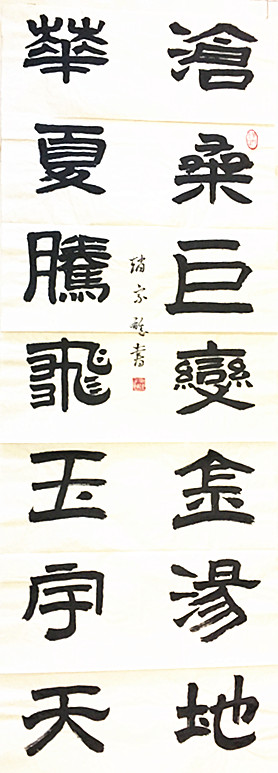 滄桑巨變金湯地
華夏騰飛玉宇天
書